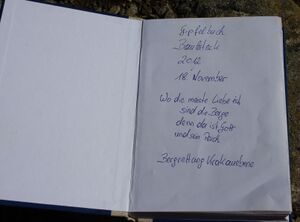 Gipfelbuch
2012
18. November
Wo die meiste Liebe ich
sind die Berge
denn da ist Gott
und sein Reich
Bergrettung Krakauebene